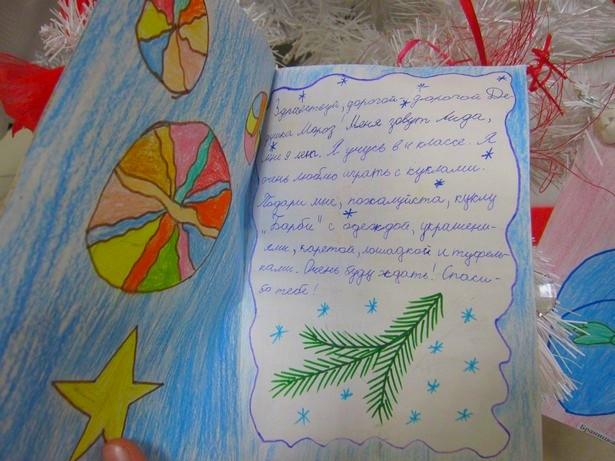 Здравствуй, дорогой - дорогой Де-
душка Мороз! Меня зовут Лида,
мне 9 лет. Я учусь в 4 классе. Я
очень люблю играть с куклами.
Подари мне, пожалуйста, куклу
„Барби" с одеждой, украшени-
ями, каретой, лошадкой и туфель-
ками. Очень буду ждать! Спаси-
бо тебе!